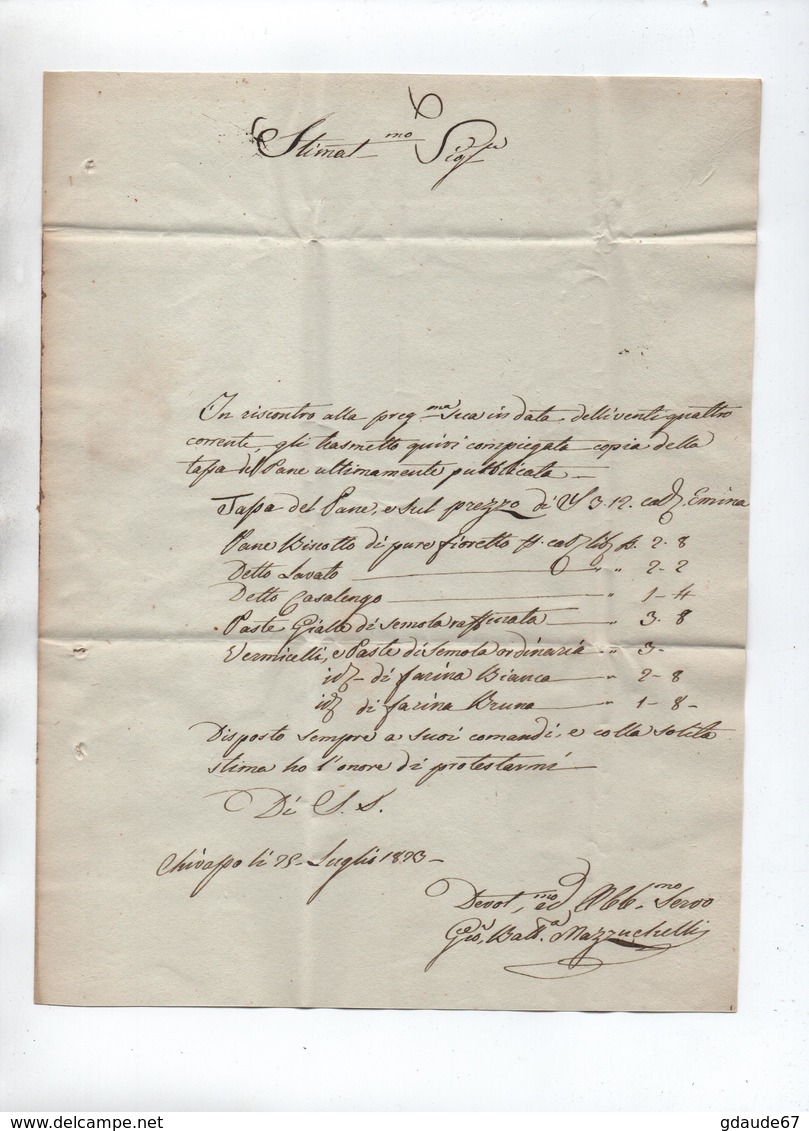 Stimat.mo Sig.re
In riscontro alla preg.ma sua in data delli venti quattro
corrente, gli trasmetto quivi compiegata copia della
tassa del Pane ultimamente pubblicata —
Tassa del Pane, e sul prezzo di 3. 12. cad. Emina
Pane Biscotto di puro fioretto p. cad. 2. 8
Detto Lavato — " " 2 - 2
Detto Casalengo — " 1 - 4
Paste Gialle di semola raffinata — " 3. 8
Vermicelli, e Paste di Semola ordinaria " " 3 -
id. - di farina Bianca — " 2 - 8
id. di farina Bruna — " 1 - 8 -
Disposto sempre a suoi comandi, e colla solita
stima ho l'onore di protestarmi —
Di S. S.
Chivasso li 25 Luglio 1823 —
Devot.mo ed Obb.mo Servo
Gio. Batt.a Mazzuchelli
www.delcampe.net
gdaude67